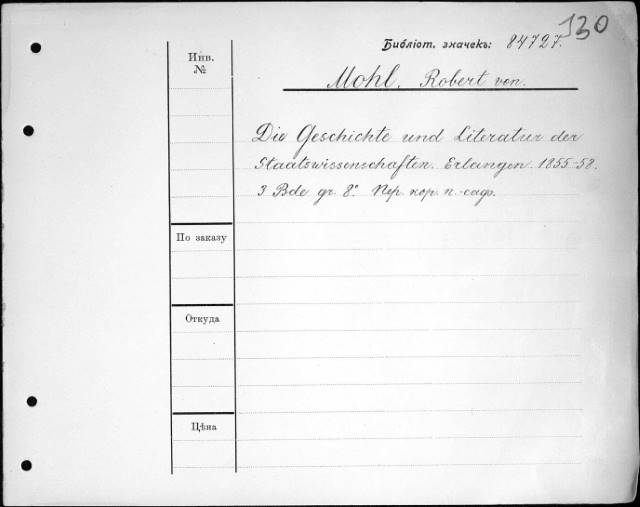 130
Библіот. значекъ: 84727.
Инв.
№
Mohl, Robert von.
Die Geschichte und Literatur der
Staatswissenschaften. Erlangen. 1855-58.
3 Bde gr. 8°. Пер. кор. п.-саф.
По заказу
Откуда
Цѣна